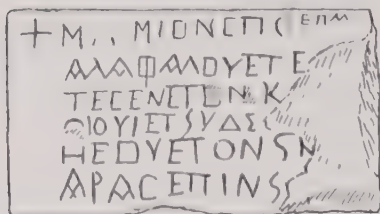 + Μ . . ΜΙΟΝΕΠΙC ΕΠΜ
ΑΛΑΦΑΛΟΥΕΤΕ
ΤΕCΕΝΕΠΕΝΚ
ΟΙΟΥΙΕΤSΥΔΕC
ΗΕΟΥΕΤΟΝSΝ
ΑΡΑCΕΠΙΝS